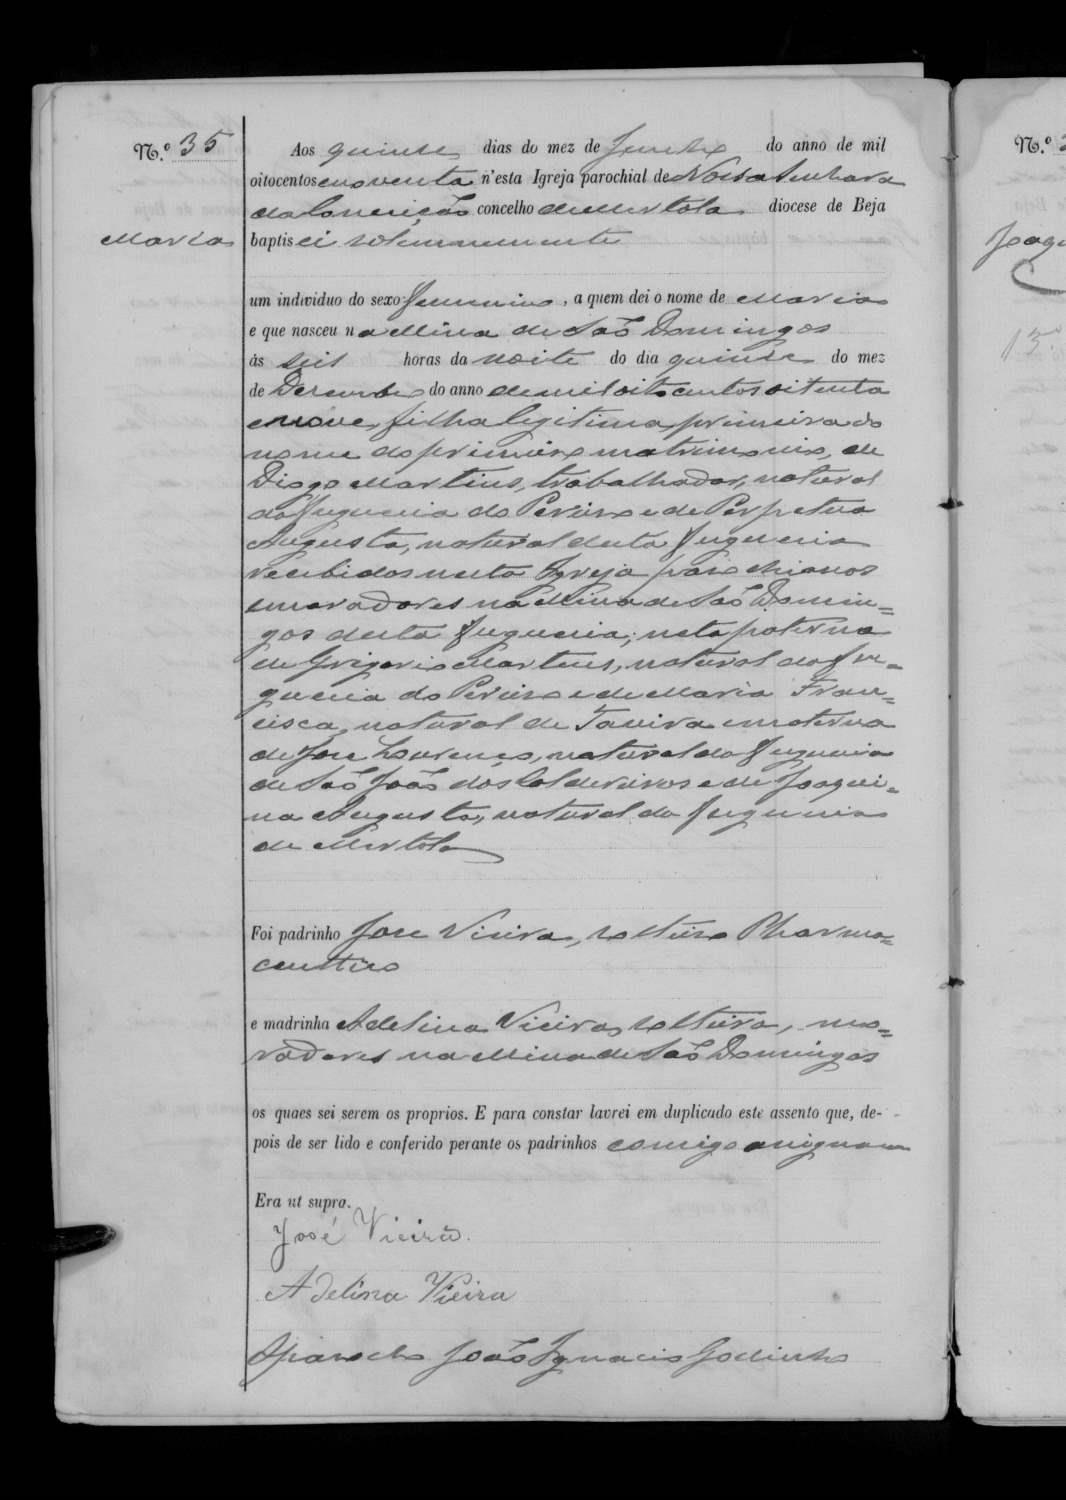 N.º 35
Aos quinse dias do mez de Junho do anno de mil
oitocentos enoventa n'esta Igreja parochial de Nossa Senhora
da Conceição concelho de Mertola diocese de Beja
Maria
baptisei solemnemente
um individuo do sexo femenino, a quem dei o nome de Maria
e que nasceu na Mina de São Domingos
ás seis horas da noite do dia quinse do mez
de Desembro do anno de mil oitocentos oitenta
e nove, filha legitima, primeira do
nome do primeiro matrimonio, de
Diogo Martins, trabalhador, natural
da freguesia do Pereiro e de Perpetua
Augusta, natural desta freguesia
recebidos nesta Igreja parochianos
e moradores na Mina de São Domin=
gos desta freguesia; neta paterna
de Grigorio Martins, natural da fre=
guesia do Pereiro e de Maria Fran=
cisca, natural de Tavira e materna
de Jose Lourenço, natural da freguesia
de São João dos Caldereiros e de Joaqui=
na Augusta, natural da freguesia
de Mertola
Foi padrinho Jose Vieira, solteiro Pharma=
ceutico
e madrinha Adelina Vieira, solteira, mo=
radores na Mina de São Domingos
os quaes sei serem os proprios. E para constar lavrei em duplicado este assento que, de-
pois de ser lido e conferido perante os padrinhos comigo assignam
Era ut supra.
José Vieira.
Adelina Vieira
O parocho João Ignacio Godinho
N.º
Joaqu